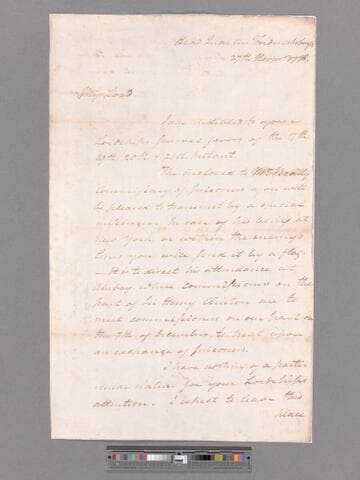 Head Quarters Fredericksburg
27th Novemr 1778.
My Lord
I am indebted to your
Lordships several favors of the 17th
19th 20th & 21st Instant.
The inclosed to Mr. Beatty
Commissary of prisoners you will
be pleased to transmit by a special
messenger. In case of his being at
New York or within the enemy's
lines you will send it by a flag.
— It is to direct his attendance at
Amboy where commissioners on the
part of Sir Henry Clinton are to
meet commissioners on our part on
the 7th of December to treat upon
an exchange of prisoners.
I have nothing of a partic
ular nature for your Lordships
attention. I expect to leave this
place